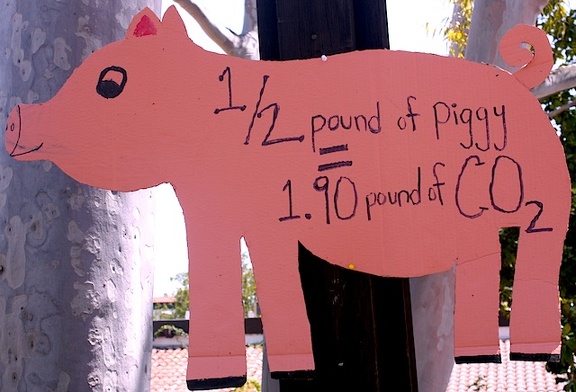 1/2 pound of piggy
=
1.90 pound of CO2